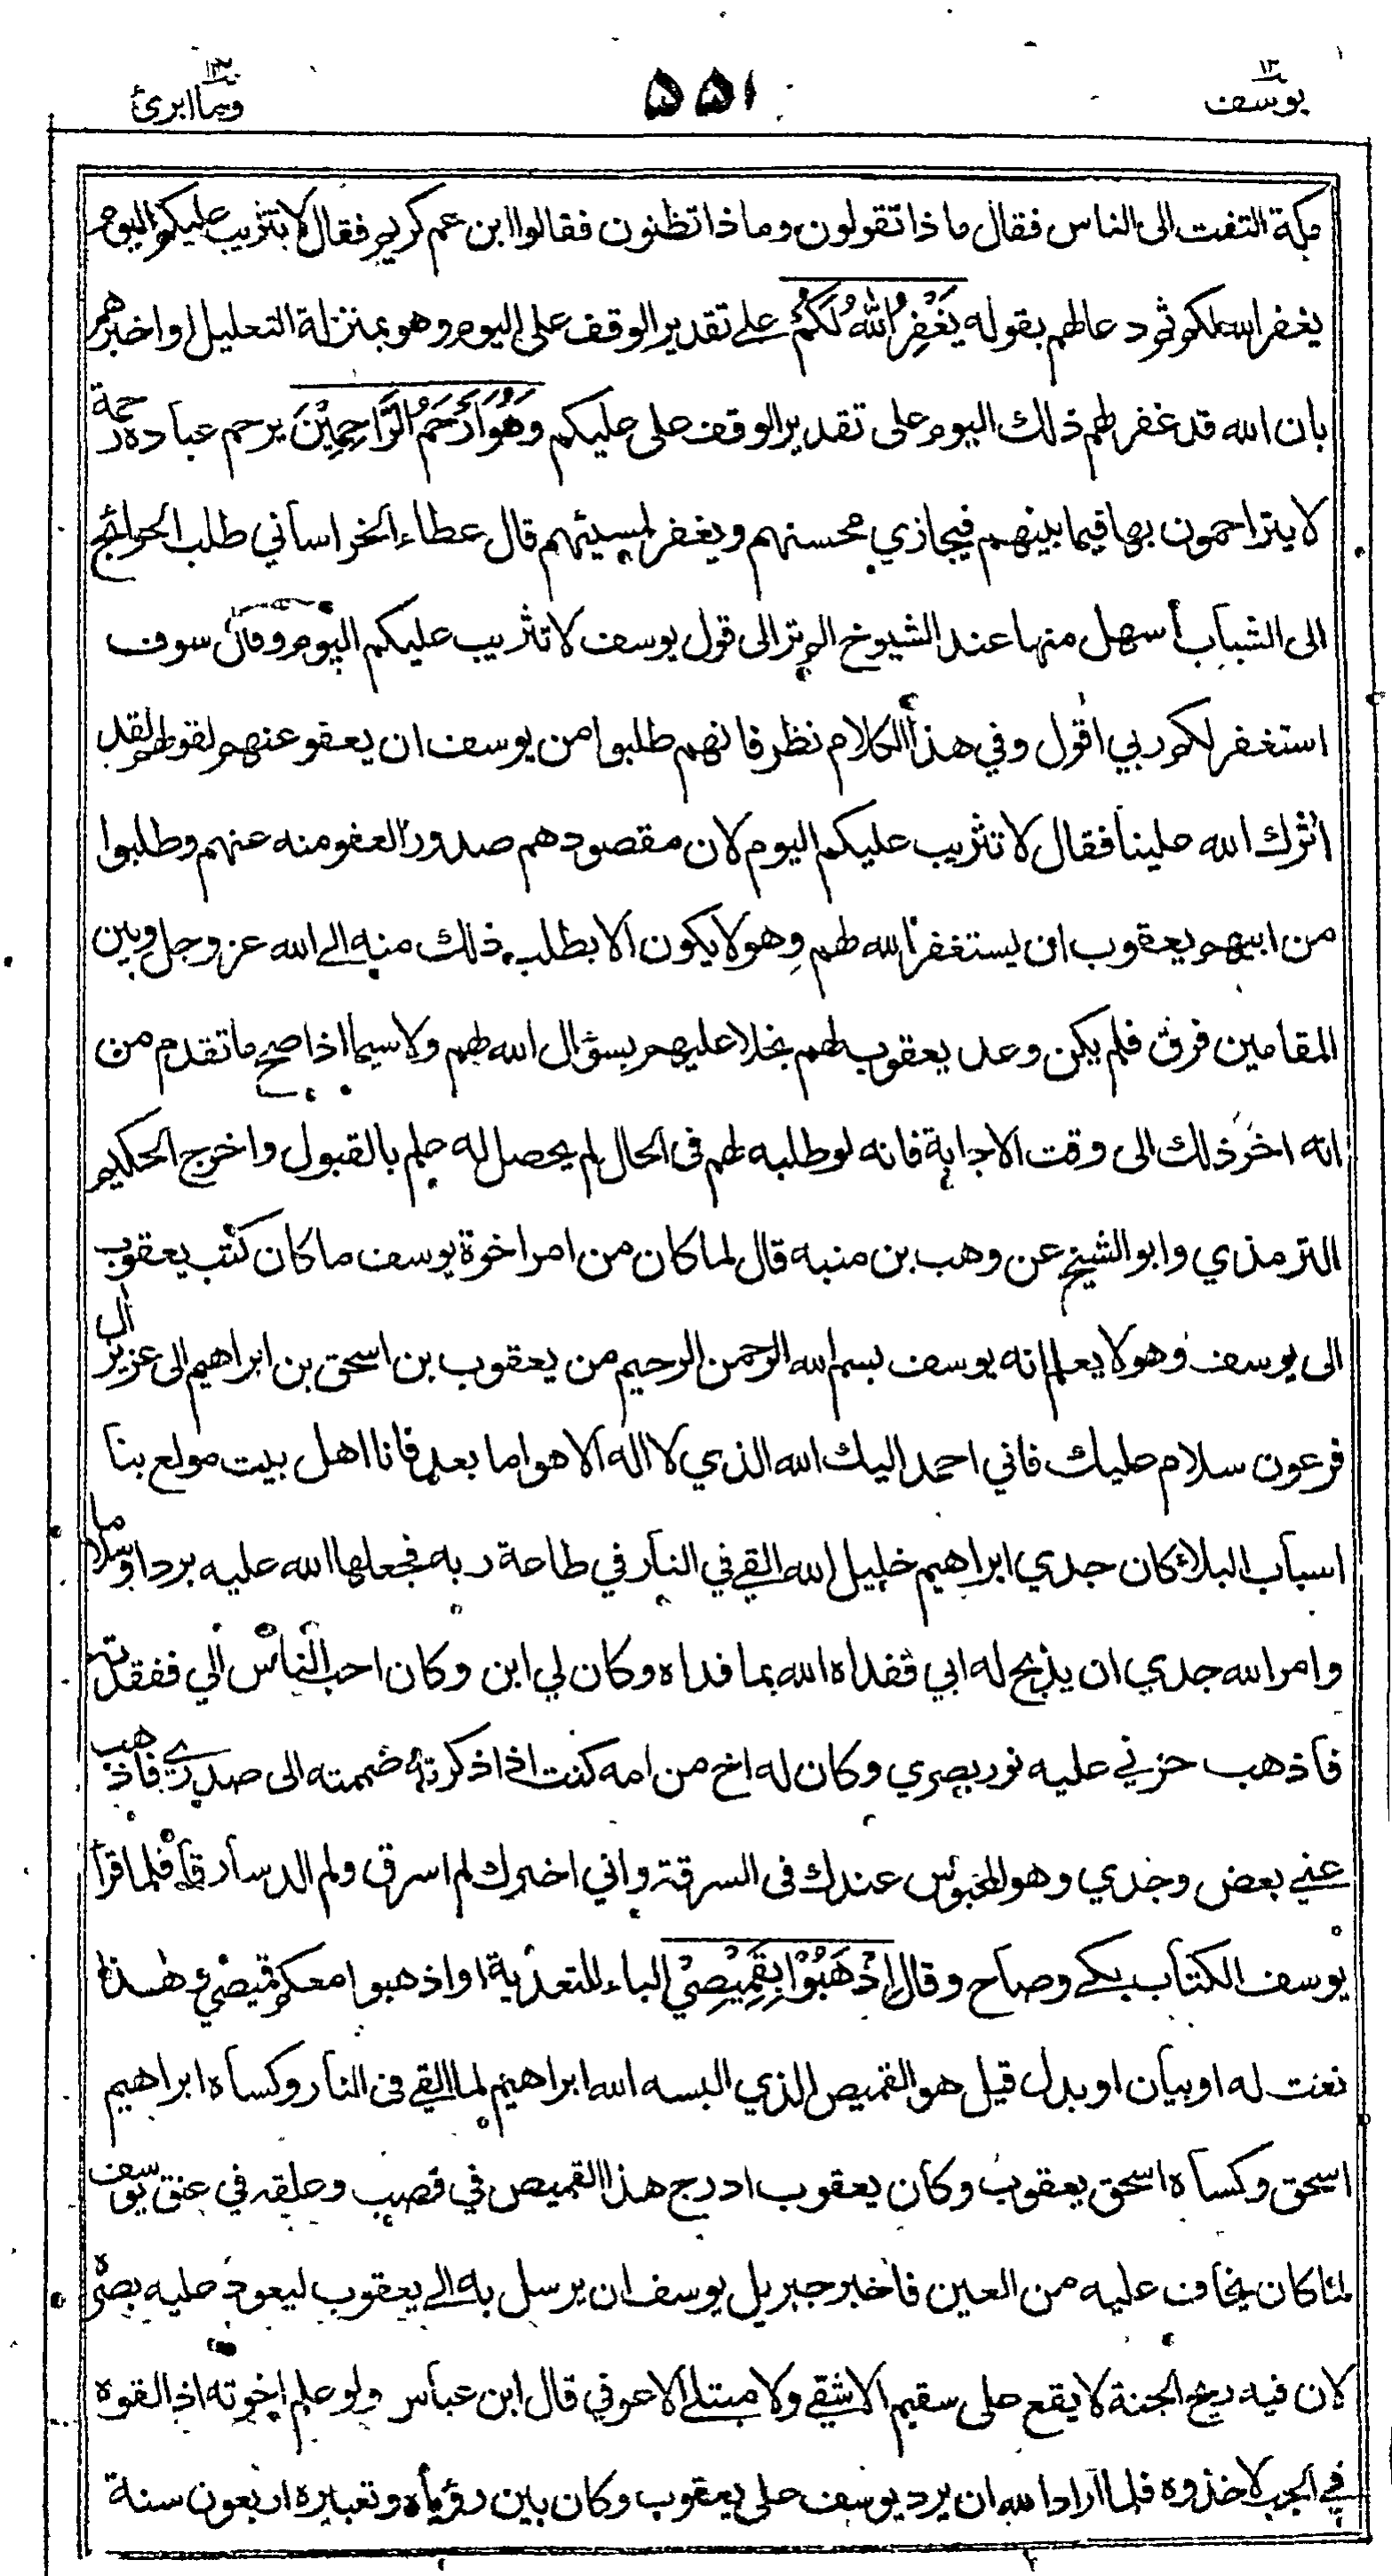 يوسف ١٢
٥٥١
وما ابرئ ١٣
مكة التفت الى الناس فقال ما ذا تقولون وما ذا تظنون فقالوا ابن عم كريم فقال لا تثريب عليكم اليوم
يغفر الله لكم ثم دعا لهم بقوله يَغْفِرُ اللهُ لَكُمْ على تقدير الوقف على اليوم وهو بمنزلة التعليل او اخبرهم
بان الله قد غفر لهم ذلك اليوم على تقدير الوقف على عليكم وَهُوَ اَرْحَمُ الرَّاحِمِيْنَ يرحم عباده رحمة
لا يتراحمون بها فيما بينهم فيجازي محسنهم ويغفر لمسيئهم قال عطاء الخراساني طلب الحوائج
الى الشباب أسهل منها عند الشيوخ الم تر الى قول يوسف لا تثريب عليكم اليوم وقال سوف
استغفر لكم ربي اقول وفي هذا الكلام نظر فانهم طلبوا من يوسف ان يعفو عنهم لقولهم لقد
اثرك الله علينا فقال لا تثريب عليكم اليوم لان مقصودهم صدور العفو منه عنهم وطلبوا
من ابيهم يعقوب ان يستغفر الله لهم وهو لا يكون الا بطلب ذلك منه الى الله عز وجل وبين
المقامين فرق فلم يكن وعد يعقوب لهم بخلا عليهم بسؤال الله لهم ولا سيما اذا صح ما تقدم من
انه اخر ذلك الى وقت الاجابة فانه لو طلبه لهم في الحال لم يحصل له علم بالقبول واخرج الحكيم
الترمذي وابو الشيخ عن وهب بن منبه قال لما كان من امر اخوة يوسف ما كان كتب يعقوب
الى يوسف وهو لا يعلم انه يوسف بسم الله الرحمن الرحيم من يعقوب بن اسحق بن ابراهيم الى عزيز ال
فرعون سلام عليك فاني احمد اليك الله الذي لا اله الا هو اما بعد فانا اهل بيت مولع بنا
اسباب البلاء كان جدي ابراهيم خليل الله القي في النار في طاعة ربه فجعلها الله عليه بردا وسلاما
وامر الله جدي ان يذبح له ابي ففداه الله بما فداه وكان لي ابن وكان احب الناس الي ففقدته
فأذهب حزني عليه نور بصري وكان له اخ من امه كنت اذا ذكرته ضممته الى صدري فاذهب
عني بعض وجدي وهو المحبوس عندك في السرقة واني اخبرك لم اسرق ولم الد سارقا فلما قرأ
يوسف الكتاب بكى وصاح وقال اِذْهَبُوْا بِقَمِيْصِيْ الباء للتعدية او اذهبوا معكم قميصي وهذا
نعت له او بيان او بدل قيل هو القميص الذي البسه الله ابراهيم لما القي في النار وكساه ابراهيم
اسحق وكساه اسحق يعقوب وكان يعقوب ادرج هذا القميص في قصب وعلقه في عنق يوسف
لما كان يخاف عليه من العين فاخبر جبريل يوسف ان يرسل به الى يعقوب ليعود عليه بصره
لان فيه ريح الجنة لا يقع على سقيم الا شفي ولا مبتلى الا عوفي قال ابن عباس ولو علم اخوته اذ القوه
في الجب لاخذوه فلما اراد الله ان يرد يوسف على يعقوب وكان بين رؤياه وتعبيره اربعون سنة